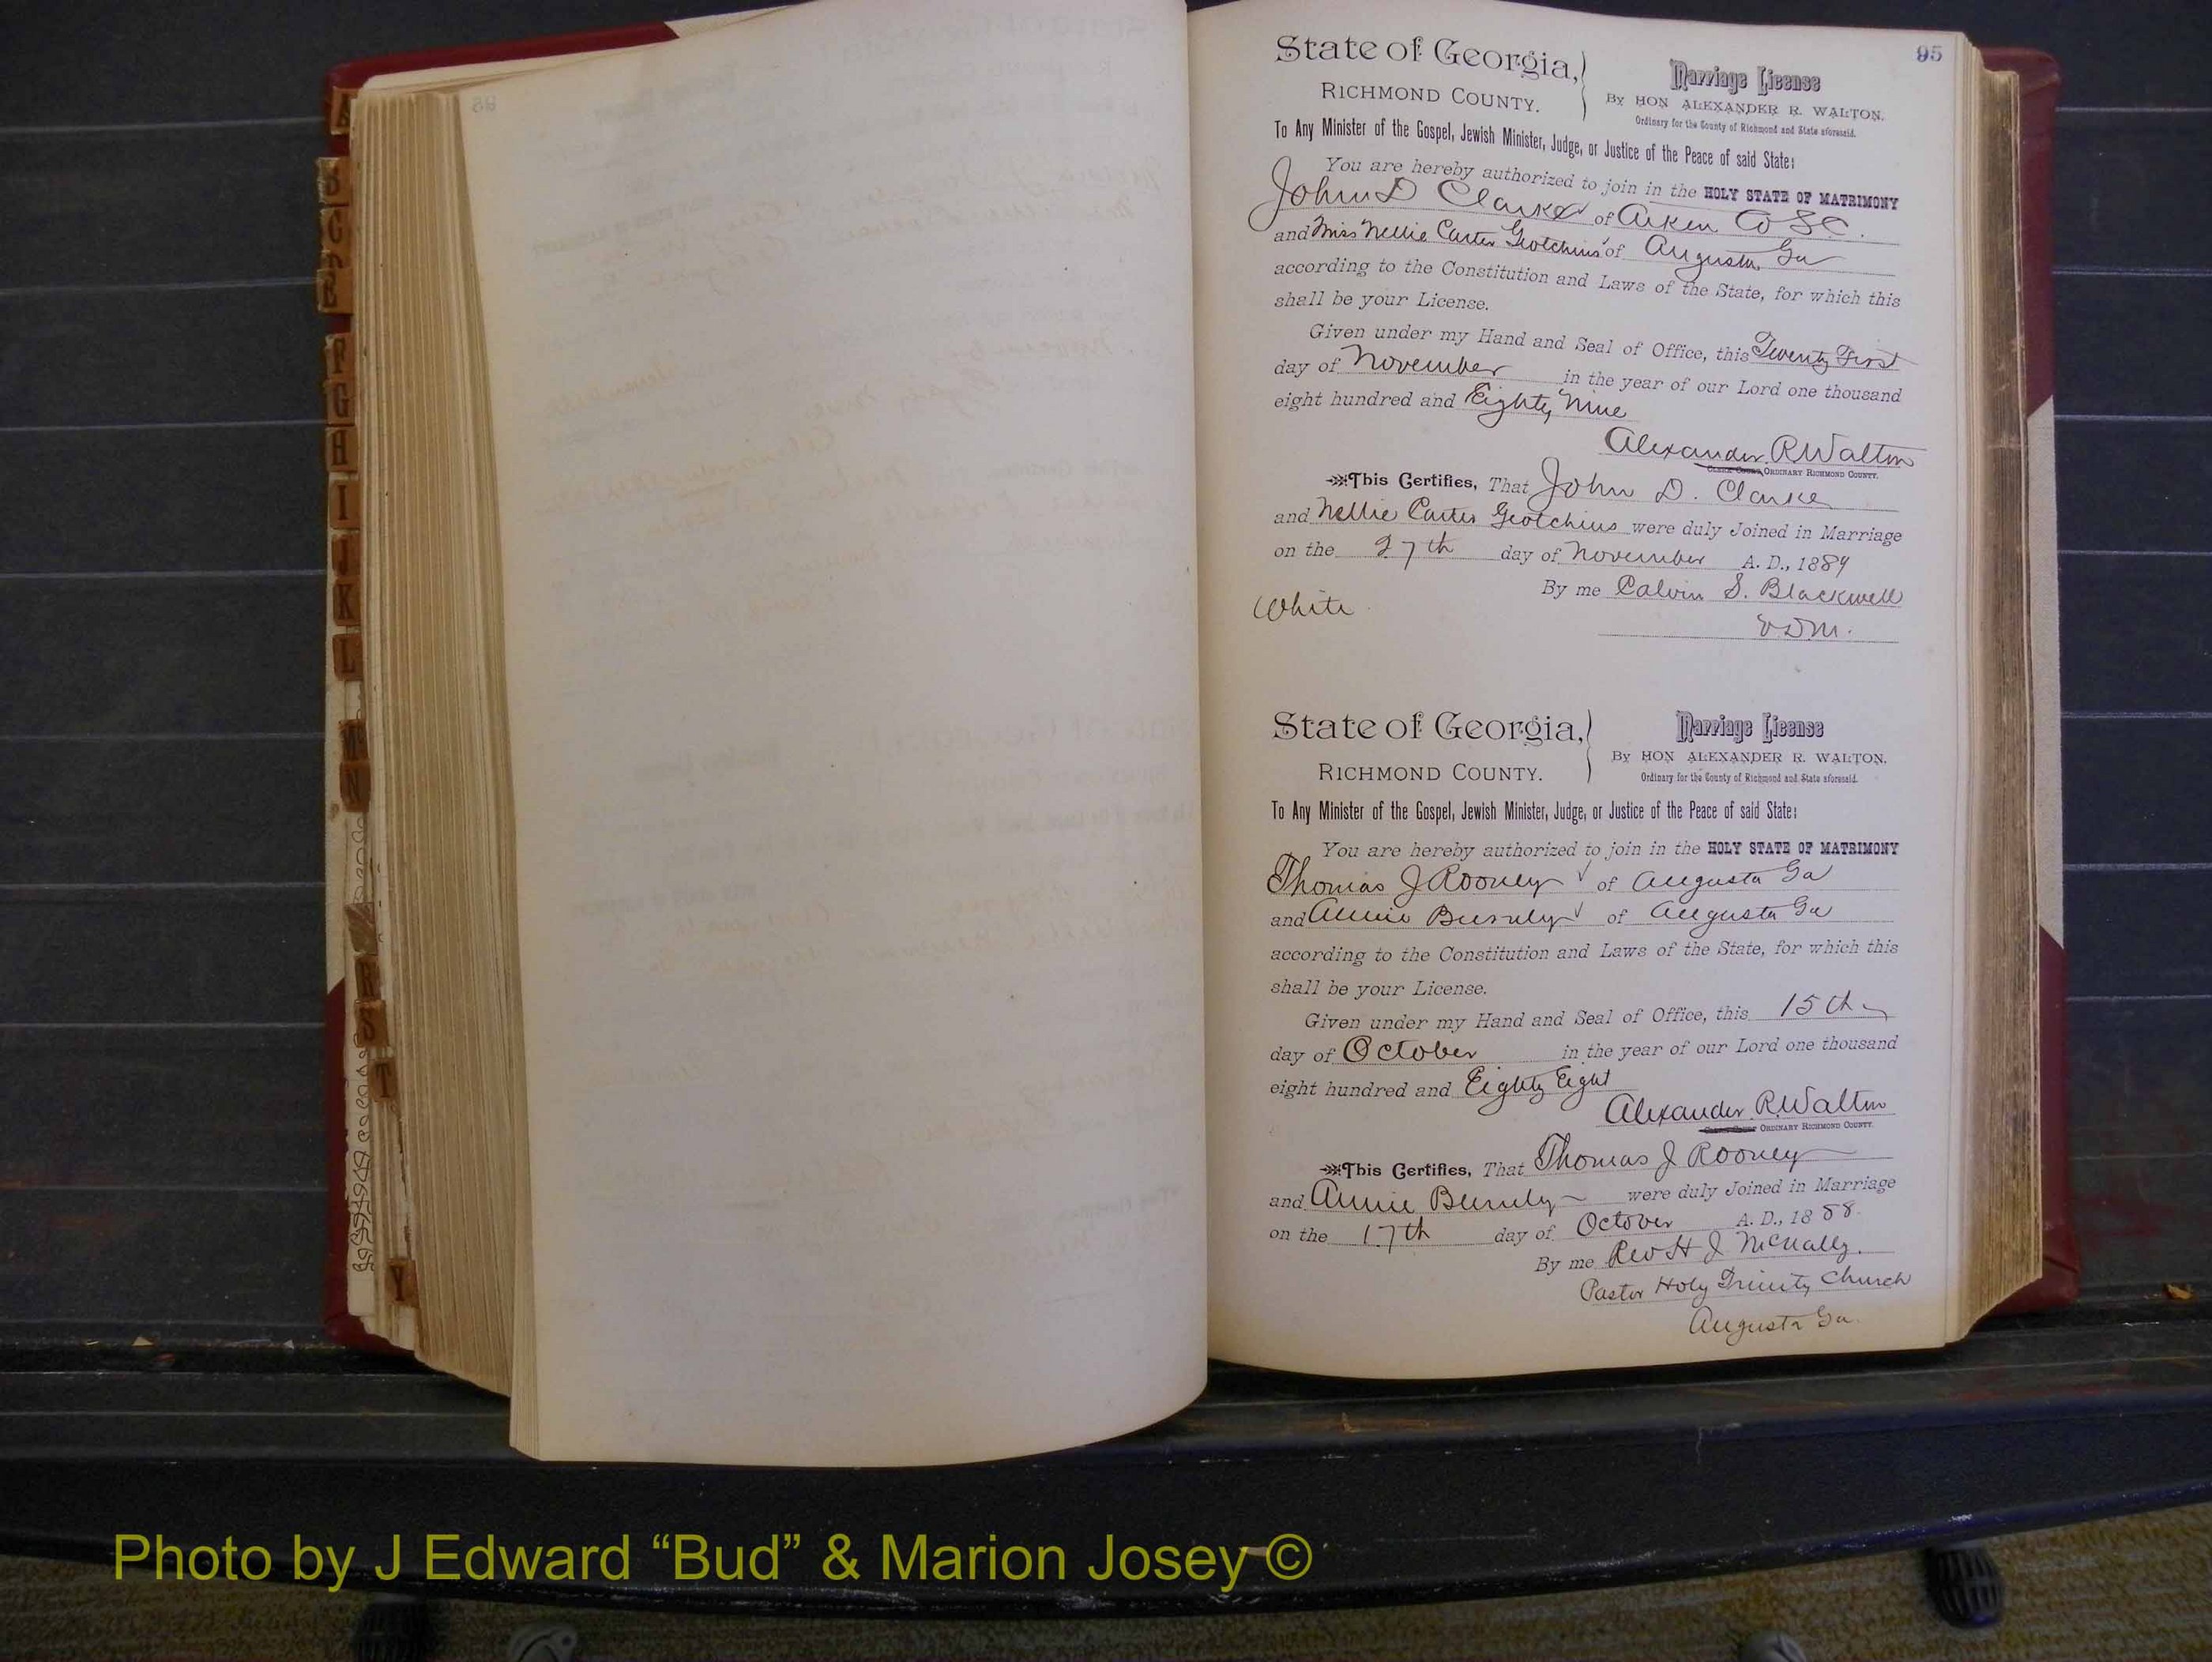 95
State of Georgia,
RICHMOND COUNTY.
Marriage License
By HON ALEXANDER R. WALTON,
Ordinary for the County of Richmond and State aforesaid.
To Any Minister of the Gospel, Jewish Minister, Judge, or Justice of the Peace of said State:
You are hereby authorized to join in the HOLY STATE OF MATRIMONY
John D Clarke of Aiken Co SC.
and Miss Nellie Carter Gotchius of Augusta Ga
according to the Constitution and Laws of the State, for which this
shall be your License.
Given under my Hand and Seal of Office, this Twenty First
day of November in the year of our Lord one thousand
eight hundred and Eighty Nine
Alexander R Walton
ORDINARY RICHMOND COUNTY.
This Certifies, That John D. Clarke
and Nellie Carter were duly Joined in Marriage
on the 27th day of November A. D., 1889
By me Calvin S. Blackwell
White
V.D.M.
State of Georgia,
RICHMOND COUNTY.
Marriage License
By HON ALEXANDER R. WALTON,
Ordinary for the County of Richmond and State aforesaid.
To Any Minister of the Gospel, Jewish Minister, Judge, or Justice of the Peace of said State:
You are hereby authorized to join in the HOLY STATE OF MATRIMONY
Thomas J Rooney of Augusta Ga
and Annie Burnley of Augusta Ga
according to the Constitution and Laws of the State, for which this
shall be your License.
Given under my Hand and Seal of Office, this 15th
day of October in the year of our Lord one thousand
eight hundred and Eighty Eight
Alexander R Walton
ORDINARY RICHMOND COUNTY.
This Certifies, That Thomas J Rooney
and Annie were duly Joined in Marriage
on the 17th day of October A. D., 1888.
By me Rev H J McNally.
Pastor Holy Trinity Church
Augusta Ga.
A
B
C
D
E
F
G
H
I
J
K
L
Mc
N
R
S
T
Y
Photo by J Edward “Bud” & Marion Josey ©